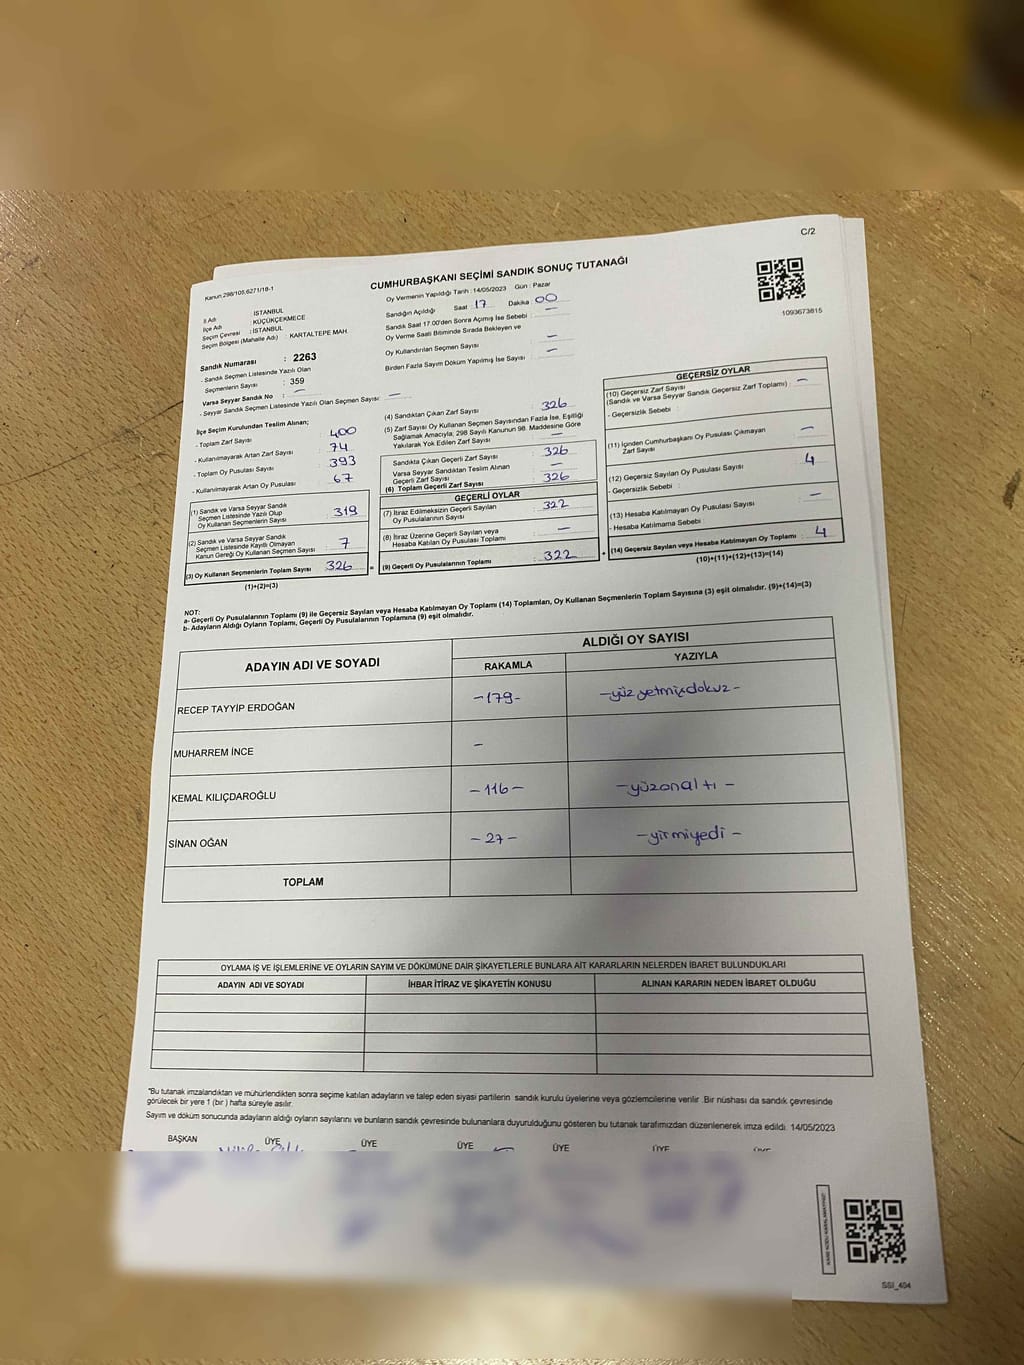 C/2
Kanun.298/105,6271/18-1
CUMHURBAŞKANI SEÇİMİ SANDIK SONUÇ TUTANAĞI
1093673815
İl Adı : İSTANBUL
İlçe Adı : KÜÇÜKÇEKMECE
Seçim Çevresi : İSTANBUL
Seçim Bölgesi (Mahalle Adı) : KARTALTEPE MAH.
Sandık Numarası : 2263
- Sandık Seçmen Listesinde Yazılı Olan
Seçmenlerin Sayısı : 359
Varsa Seyyar Sandık No : —
- Seyyar Sandık Seçmen Listesinde Yazılı Olan Seçmen Sayısı : —
Oy Vermenin Yapıldığı Tarih : 14/05/2023 Gün : Pazar
Sandığın Açıldığı Saat : 17 Dakika : 00
Sandık Saat 17.00'den Sonra Açımış İse Sebebi : —
Oy Verme Saati Bitiminde Sırada Bekleyen ve
Oy Kullandırılan Seçmen Sayısı : —
Birden Fazla Sayım Döküm Yapılmış İse Sayısı : —
İlçe Seçim Kurulundan Teslim Alınan;
- Toplam Zarf Sayısı : 400
- Kullanılmayarak Artan Zarf Sayısı : 74
- Toplam Oy Pusulası Sayısı : 393
- Kullanılmayarak Artan Oy Pusulası : 67
(1) Sandık ve Varsa Seyyar Sandık
Seçmen Listesinde Yazılı Olup
Oy Kullanan Seçmenlerin Sayısı : 319
(2) Sandık ve Varsa Seyyar Sandık
Seçmen Listesinde Kayıtlı Olmayan
Kanun Gereği Oy Kullanan Seçmen Sayısı : 7
(3) Oy Kullanan Seçmenlerin Toplam Sayısı : 326
(1)+(2)=(3)
(4) Sandıktan Çıkan Zarf Sayısı : 326
(5) Zarf Sayısı Oy Kullanan Seçmen Sayısından Fazla İse, Eşitliği
Sağlamak Amacıyla; 298 Sayılı Kanunun 98. Maddesine Göre
Yakılarak Yok Edilen Zarf Sayısı : —
Sandıkta Çıkan Geçerli Zarf Sayısı : 326
Varsa Seyyar Sandıktan Teslim Alınan
Geçerli Zarf Sayısı : —
(6) Toplam Geçerli Zarf Sayısı : 326
GEÇERLİ OYLAR
(7) İtiraz Edilmeksizin Geçerli Sayılan
Oy Pusulalarının Sayısı : 322
(8) İtiraz Üzerine Geçerli Sayılan veya
Hesaba Katılan Oy Pusulası Toplamı : —
= (9) Geçerli Oy Pusulalarının Toplamı : 322
GEÇERSİZ OYLAR
(10) Geçersiz Zarf Sayısı
(Sandık ve Varsa Seyyar Sandık Geçersiz Zarf Toplamı) : —
- Geçersizlik Sebebi :
(11) İçinden Cumhurbaşkanı Oy Pusulası Çıkmayan
Zarf Sayısı : —
(12) Geçersiz Sayılan Oy Pusulası Sayısı : 4
- Geçersizlik Sebebi :
(13) Hesaba Katılmayan Oy Pusulası Sayısı : —
- Hesaba Katılmama Sebebi :
+ (14) Geçersiz Sayılan veya Hesaba Katılmayan Oy Toplamı : 4
(10)+(11)+(12)+(13)=(14)
NOT:
a- Geçerli Oy Pusulalarının Toplamı (9) ile Geçersiz Sayılan veya Hesaba Katılmayan Oy Toplamı (14) Toplamları, Oy Kullanan Seçmenlerin Toplam Sayısına (3) eşit olmalıdır. (9)+(14)=(3)
b- Adayların Aldığı Oyların Toplamı, Geçerli Oy Pusulalarının Toplamına (9) eşit olmalıdır.
ADAYIN ADI VE SOYADI
ALDIĞI OY SAYISI
RAKAMLA YAZIYLA
RECEP TAYYİP ERDOĞAN -179- -yüzyetmişdokuz-
MUHARREM İNCE -
KEMAL KILIÇDAROĞLU -116- -yüzonaltı-
SİNAN OĞAN -27- -yirmiyedi-
TOPLAM
OYLAMA İŞ VE İŞLEMLERİNE VE OYLARIN SAYIM VE DÖKÜMÜNE DAİR ŞİKAYETLERLE BUNLARA AİT KARARLARIN NELERDEN İBARET BULUNDUKLARI
ADAYIN ADI VE SOYADI İHBAR İTİRAZ VE ŞİKAYETİN KONUSU ALINAN KARARIN NEDEN İBARET OLDUĞU
"Bu tutanak imzalandıktan ve mühürlendikten sonra seçime katılan adayların ve talep eden siyasi partilerin sandık kurulu üyelerine veya gözlemcilerine verilir .Bir nüshası da sandık çevresinde
görülecek bir yere 1 (bir ) hafta süreyle asılır.
Sayım ve döküm sonucunda adayların aldığı oyların sayılarını ve bunların sandık çevresinde bulunanlara duyurulduğunu gösteren bu tutanak tarafımızdan düzenlenerek imza edildi. 14/05/2023
BAŞKAN ÜYE ÜYE ÜYE ÜYE ÜYE ÜYE
SSİ_404